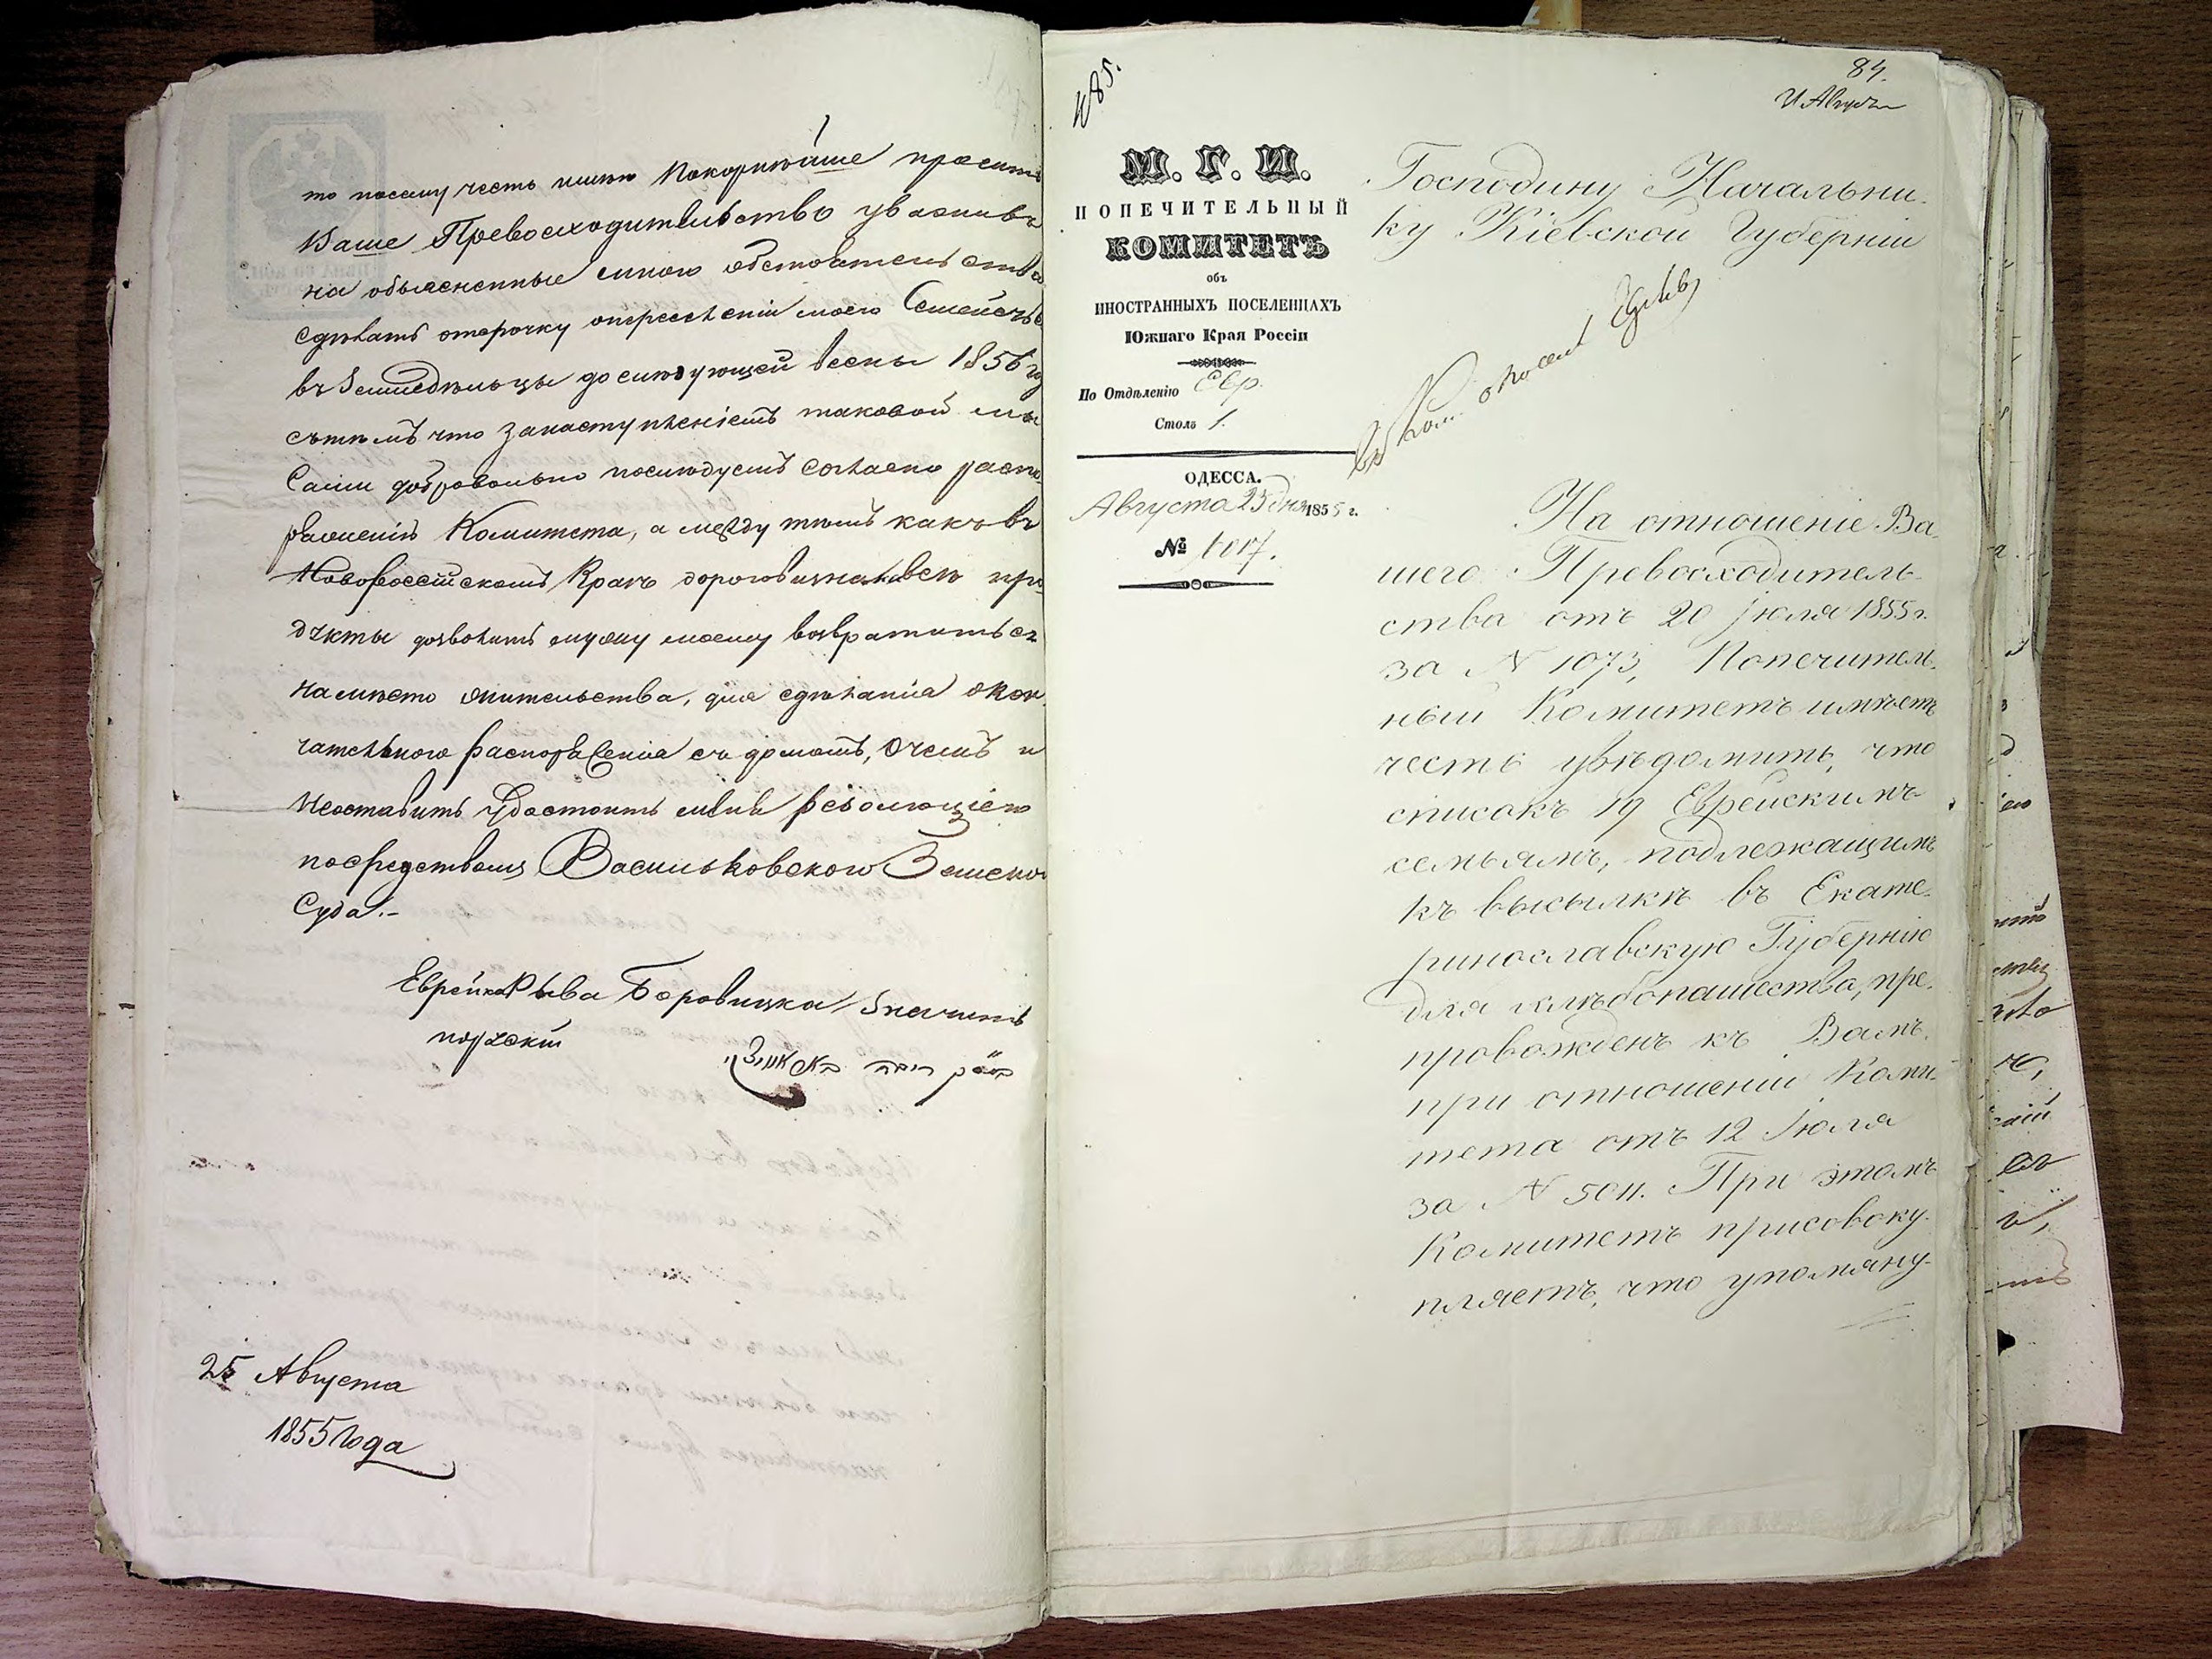 то посему честь имею Покорнейше просить
Ваше Превосходительство уваживъ
на объясненные мною обстоятельства
сделать отсрочку опереселеніи моего Семейства
въ Земледельцы до следующей весны 1856 го
сътемъ что занаступленіемъ таковой мы
Сами добровольно последуемъ согласно распо-
ряженія Комитета, а между темъ какъ въ
Новороссійскомъ Крае дороговизна навсе про-
дукты дозволить мужу моему возвратиться
наместо жительства, для сделанія окон-
чательного распоряженія съ домомъ, Очемъ и
Неоставить Удостоить меня резолюціею
посредствомъ Васильковского Земского
Суда.-
Еврейка Рыва Боровицка / Значитъ
порускій
25 Августа
1855 Года
84.
М. Г. И.
ПОПЕЧИТЕЛЬНЫЙ
КОМИТЕТЪ
объ
ИНОСТРАННЫХЪ ПОСЕЛЕНІЯХЪ
Южнаго Края Россіи
По Отдѣленію Евр.
Столъ 1.
ОДЕССА.
Августа 23 дня 1855 г.
№
Господину Начальни-
ку Кіевской Губерніи
На отношеніе Ва-
шего Превосходитель-
ства отъ 20 Іюля 1855 г.
за N 1073, Попечитель-
ный Комитетъ имѣетъ
честь увѣдомить, что
списокъ 19 Еврейскимъ
семьямъ, подлежащимъ
къ высылкѣ въ Екате-
ринославскую Губернію
для хлѣбопашества, пре-
провожденъ къ Вамъ
при отношеніи Коми-
тета отъ 12 Іюля
за N 5011. При этомъ
Комитетъ присовоку-
пляетъ, что упомяну-